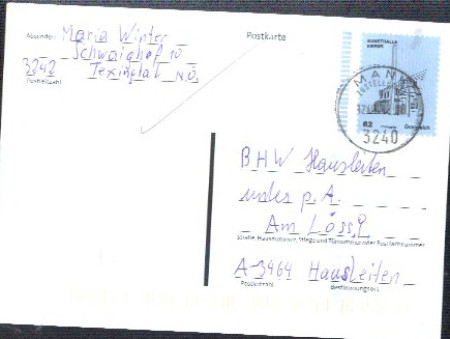 Absender: Maria Winter
Schwaighof 10
3242 Texingtal N.Ö.
Postleitzahl
Postkarte
KUNSTHALLE
KREMS
62
Österreich
MANK
3240
BHW Hausleiten
unter p. A.
Am Löss 9
Straße, Hausnummer, Stiege und Türnummer oder Postfachnummer
A-3464 Hausleiten
Postleitzahl Bestimmungsort